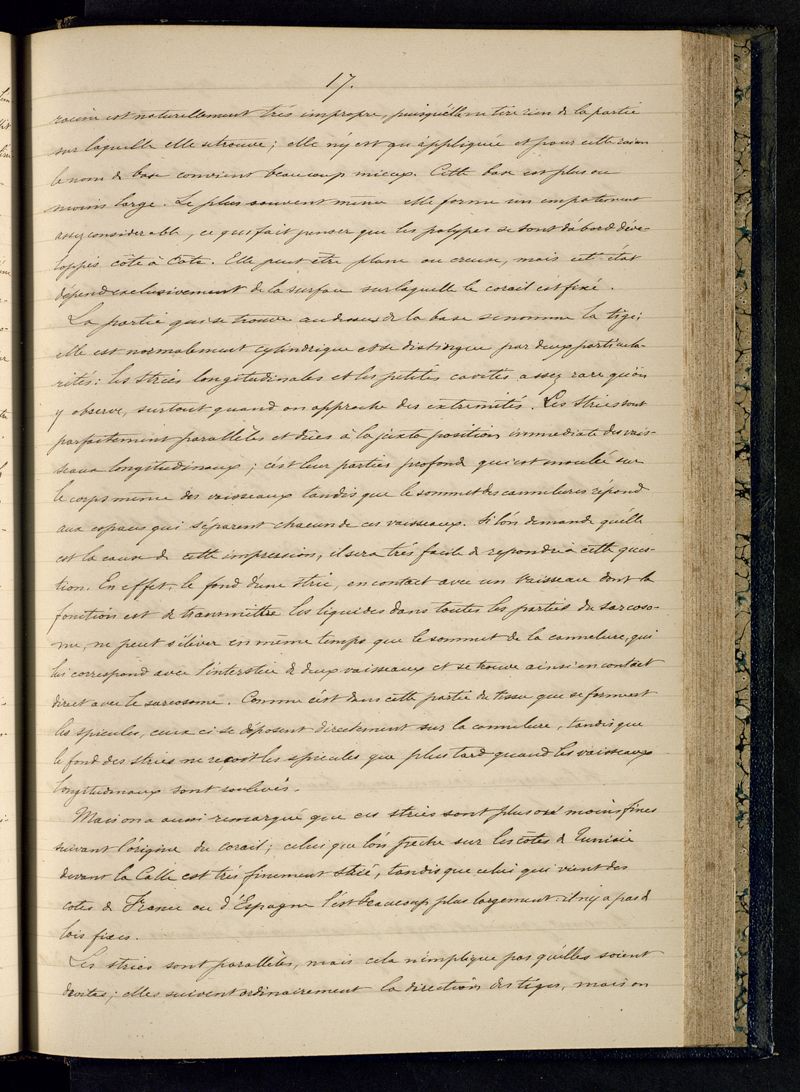 17.
racine est naturellement très impropre, puisqu'elle ne tire rien de la partie
sur laquelle elle se trouve; elle n'y est qu'appliquée et pour cette raison
le nom de base convient beaucoup mieux. Cette base est plus ou
moins large. Le plus souvent même elle forme un empatement
assez considerable, ce qui fait penser que les polypes se sont d'abord déve-
loppés côte à côte. Elle peut être plane ou creuse, mais cet état
dépend exclusivement de la surface sur laquelle le corail est fixé.
La partie qui se trouve au dessus de la base se nomme la tige;
elle est normalement cylindrique et se distingue par deux particula-
rités: les stries longitudinales et les petites cavités assez rare qu'on
y observe, surtout quand on approche des extremités. Les stries sont
parfaitement parallèles et dûes à la juxta position immediate des vais-
seaux longitudinaux; c'est leur parties profond qui est moulée sur
le corps même des vaisseaux tandis que le sommet des cannelures répond
aux espaces qui séparent chacun de ces vaisseaux. Si l'on demande qu'elle
est la cause de cette impression, il sera très facile de repondre à cette ques-
tion. En effet, le fond d'une strie, en contact avec un vaisseau dont la
fonction est de transmettre les liquides dans toutes les parties du sarcoso-
me, ne peut s'élever en même temps que le sommet de la cannelure, qui
lui correspond avec l'interstice de deux vaisseaux et se trouve ainsi en contact
direct avec le sarcosome. Comme c'est dans cette partie du tissu que se forment
les spicules, ceux ci se déposent directement sur la cannelure, tandis que
le fond des stries ne reçoit les spicules que plus tard quand les vaisseaux
longitudinaux sont soulevés.
Mais on a aussi remarqué que ces stries sont plus ou moins fines
suivant l'origine du corail; celui que l'on peche sur les côtes de Tunisie
devant la Calle est très finement strié, tandis que celui qui vient des
cotes de France ou d'Espagne l'est beaucoup plus largement: il n'y a pas de
lois fixes.
Les stries sont parallèles, mais cela n'implique pas qu'elles soient
droites; elles suivent ordinairement la direction des tiges, mais on